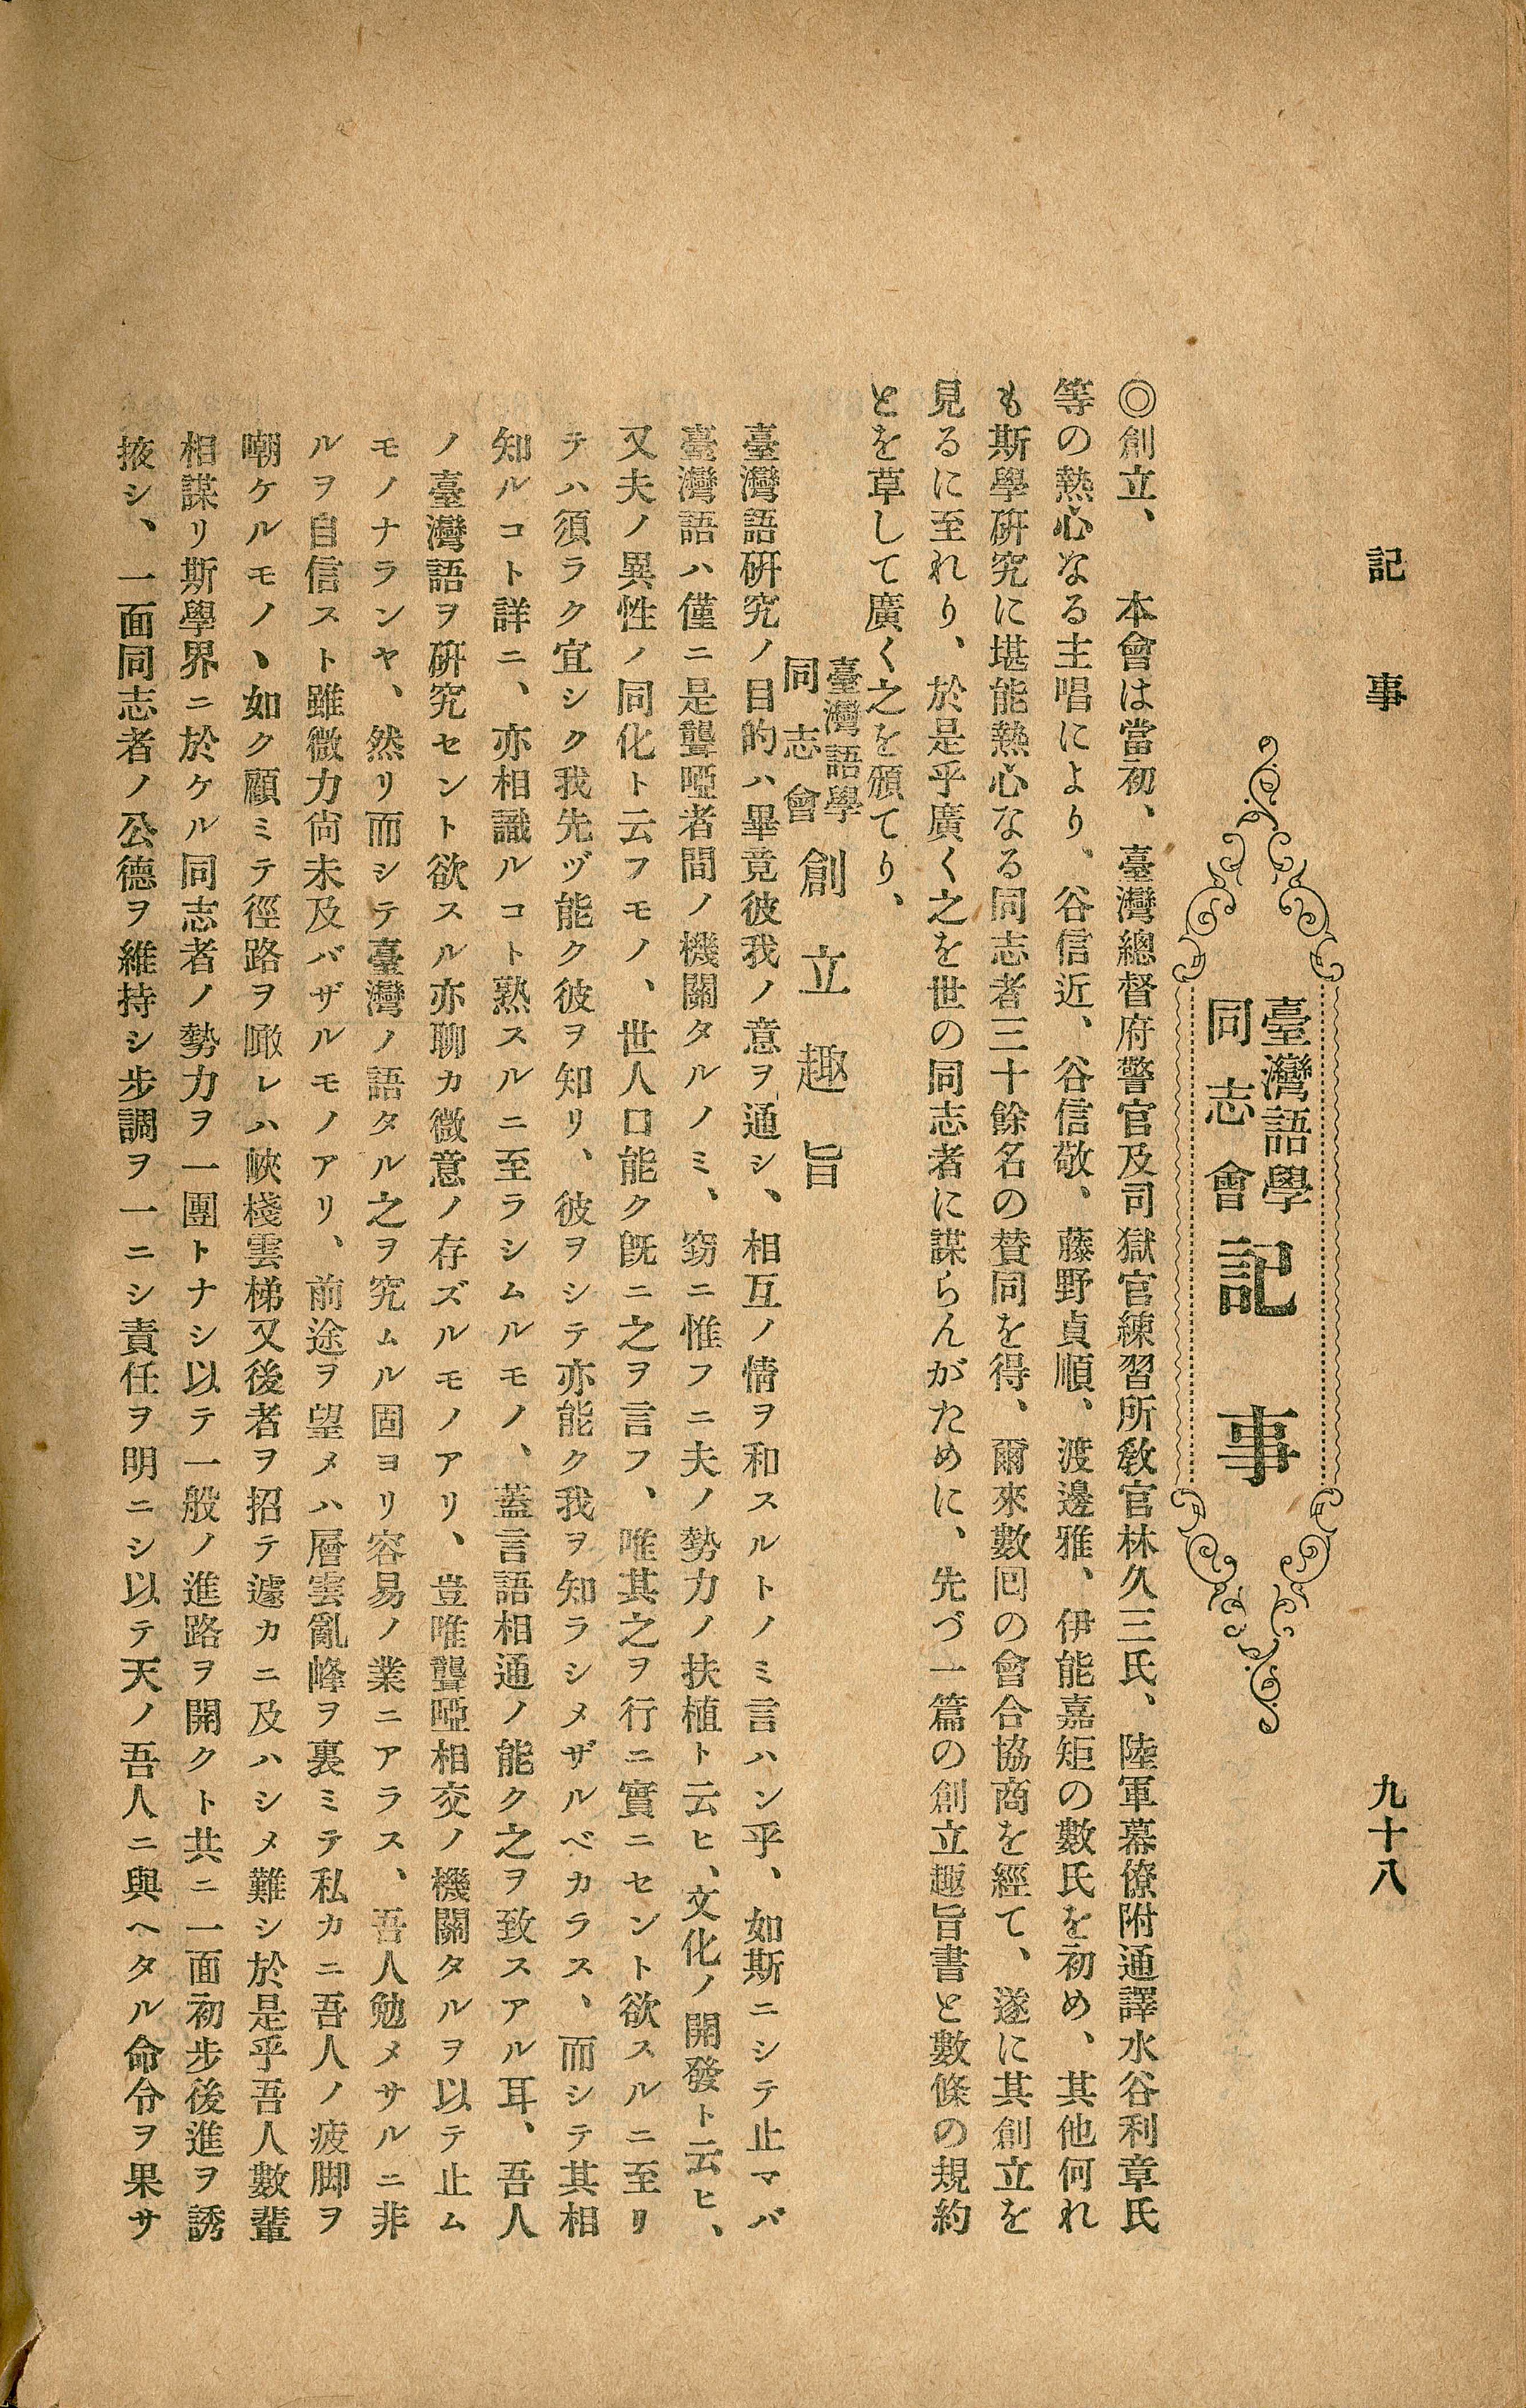 記事
九十八
臺灣語學同志會記事
◎創立、 本會は當初、臺灣總督府警官及司獄官練習所敎官林久三氏、陸軍幕僚附通譯水谷利章氏
等の熱心なる主唱により、谷信近、谷信敬、藤野貞順、渡邊雅、伊能嘉矩の數氏を初め、其他何れ
も斯學硏究に堪能熱心なる同志者三十餘名の賛同を得、爾來數回の會合協商を經て、遂に其創立を
見るに至れり、於是乎廣く之を世の同志者に謀らんがために、先づ一篇の創立趣旨書と數條の規約
とを草して廣く之を頒てり、
臺灣語學同志會創立趣旨
臺灣語硏究ノ目的ハ畢竟彼我ノ意ヲ通シ、相互ノ情ヲ和スルトノミ言ハン乎、如斯ニシテ止マバ
臺灣語ハ僅ニ是聾啞者間ノ機關タルノミ、窈ニ惟フニ夫ノ勢力ノ扶植ト云ヒ、文化ノ開發ト云ヒ、
又夫ノ異性ノ同化ト云フモノ、世人口能ク旣ニ之ヲ言フ、唯其之ヲ行ニ實ニセント欲スルニ至リ
テハ須ラク宜シク我先ヅ能ク彼ヲ知リ、彼ヲシテ亦能ク我ヲ知ラシメザルベカラス、而シテ其相
知ルコト詳ニ、亦相識ルコト熟スルニ至ラシムルモノ、蓋言語相通ノ能ク之ヲ致スアル耳、吾人
ノ臺灣語ヲ硏究セント欲スル亦聊カ微意ノ存ズルモノアリ、豈唯聾啞相交ノ機關タルヲ以テ止ム
モノナランヤ、然リ而シテ臺灣ノ語タル之ヲ究ムル固ヨリ容易ノ業ニアラス、吾人勉メサルニ非
ルヲ自信スト雖微力尙未及バザルモノアリ、前途ヲ望メハ層雲亂峰ヲ裏ミテ私カニ吾人ノ疲脚ヲ
嘲ケルモノヽ如ク顧ミテ徑路ヲ瞰レハ峽棧雲梯又後者ヲ招テ遽カニ及ハシメ難シ於是乎吾人數輩
相謀リ斯學界ニ於ケル同志者ノ勢力ヲ一團トナシ以テ一般ノ進路ヲ開クト共ニ一面初步後進ヲ誘
掖シ、一面同志者ノ公德ヲ維持シ步調ヲ一ニシ責任ヲ明ニシ以テ天ノ吾人ニ與ヘタル命令ヲ果サ